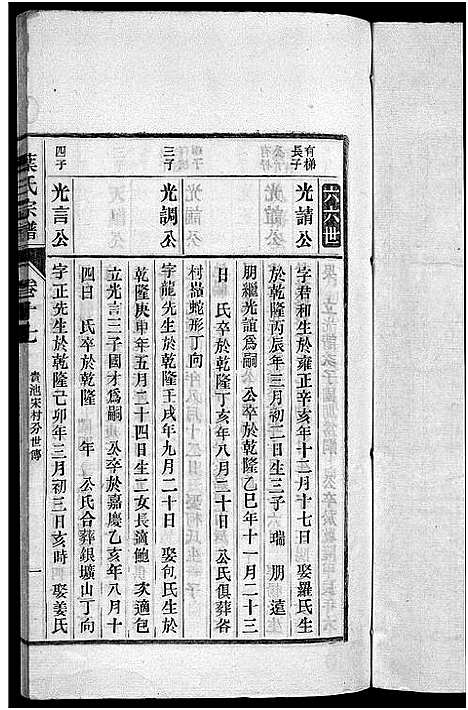 六六世
有梯
長子
光請公
字君和生於雍正辛亥年十二月十七日 娶羅氏生
於乾隆丙辰年三月初二日生三子 瑞 朋 遠
朋繼光誼爲嗣 公卒於乾隆乙巳年十一月二十三
日 氏卒於乾隆丁亥年八月二十日 公氏俱葬谷
村嶺蛇形丁向
三子
光調公
字龍先生於乾隆壬戌年九月二十日 娶何氏生於
乾隆庚申年五月二十四日生二女長適鮑 次適包
立光言三子國才爲嗣 公卒於嘉慶乙亥年八月十
四日 氏卒於乾隆 年 公氏合葬銀壙山丁向
四子
光言公
字正先生於乾隆己卯年三月初三日亥時 娶姜氏
葉氏宗譜
卷十七
貴池宋村分世傳
一